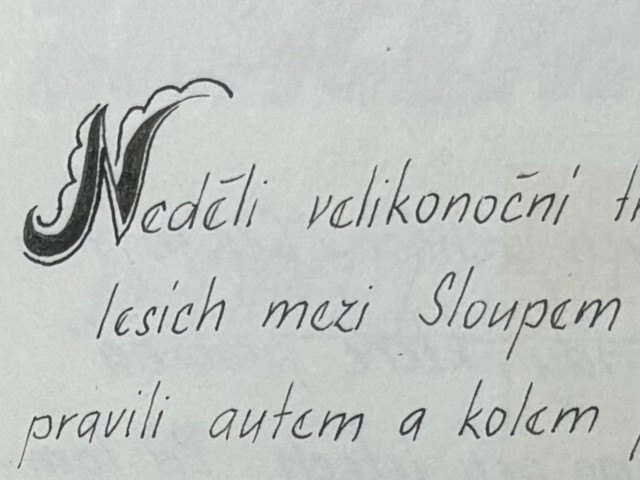 Neděli velikonoční
lesích mezi Sloupem
pravili autem a kolem